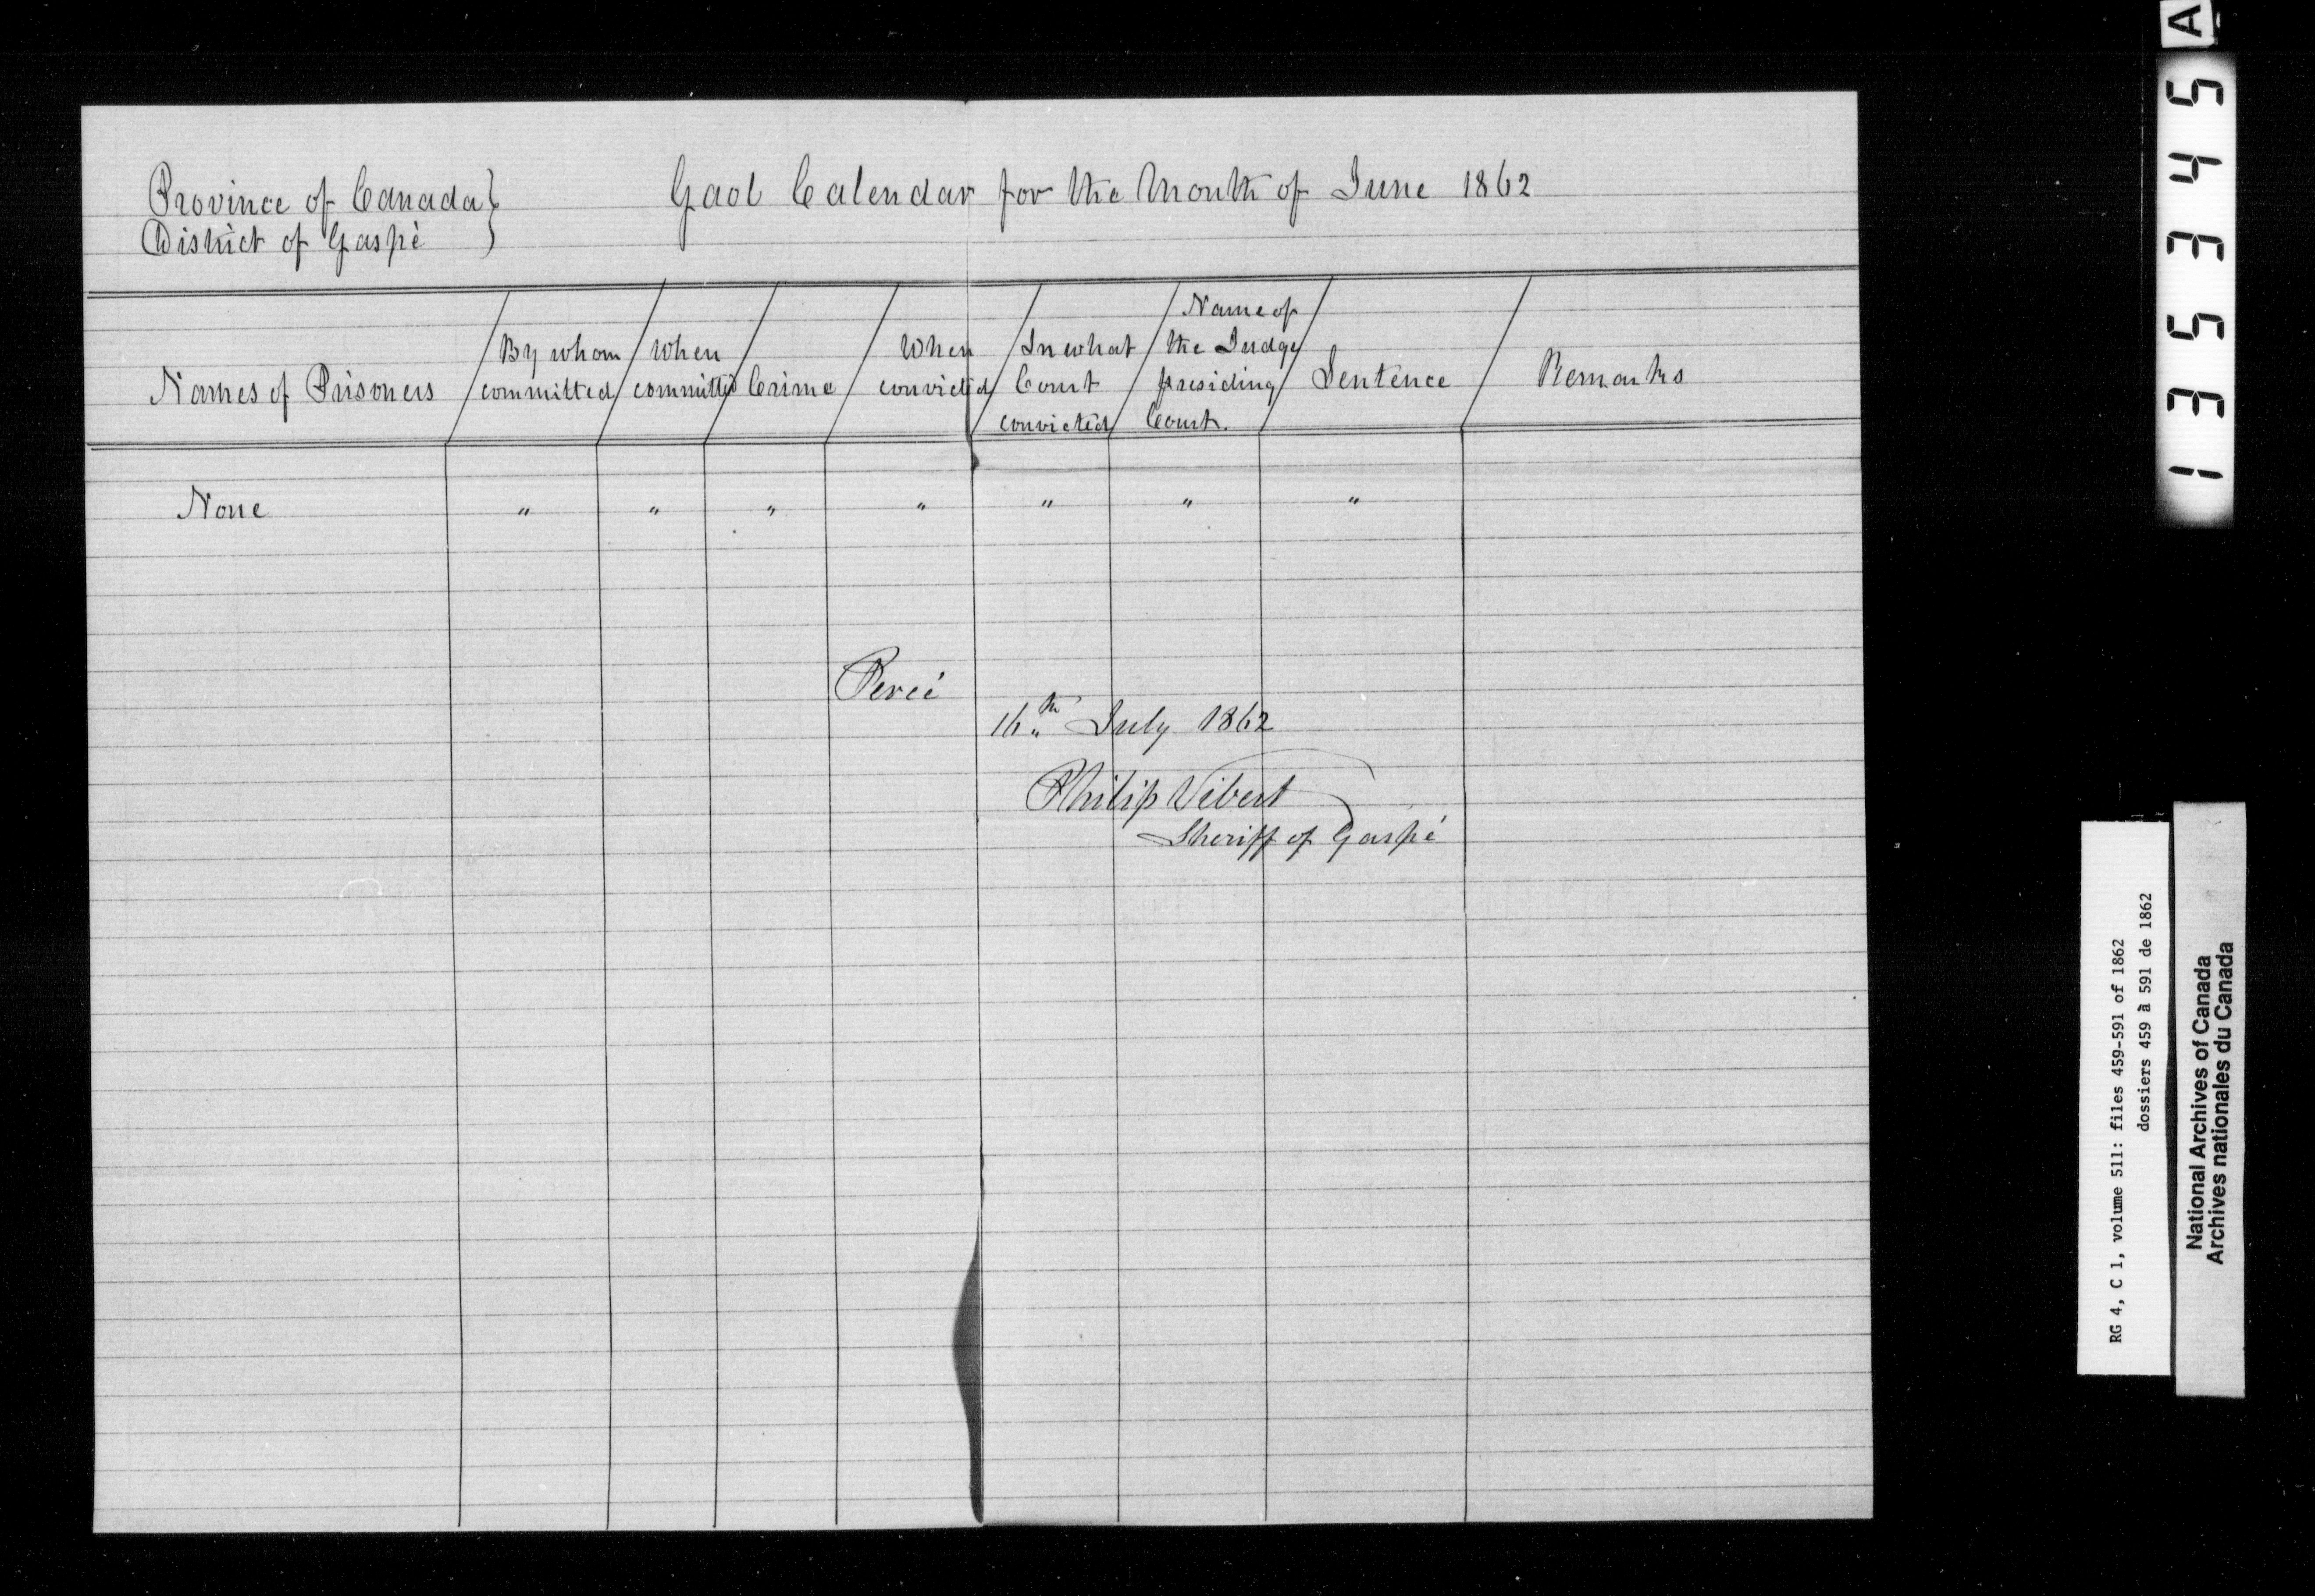 Province of Canada }
District of Gaspè }
Gaol Calendar for the Month of June 1862
Names of Prisoners
By whom
committed
When
committed
Crime
When
convicted
In what
Court
convicted
Name of
the Judge
presiding
Court.
Sentence
Remarks
None " " " " " " "
Percé
16th July 1862
Philip Vibert
Sheriff of Gaspé
135345
A
RG 4, C 1, volume 511: files 459-591 of 1862
dossiers 459 à 591 de 1862
National Archives of Canada
Archives nationales du Canada